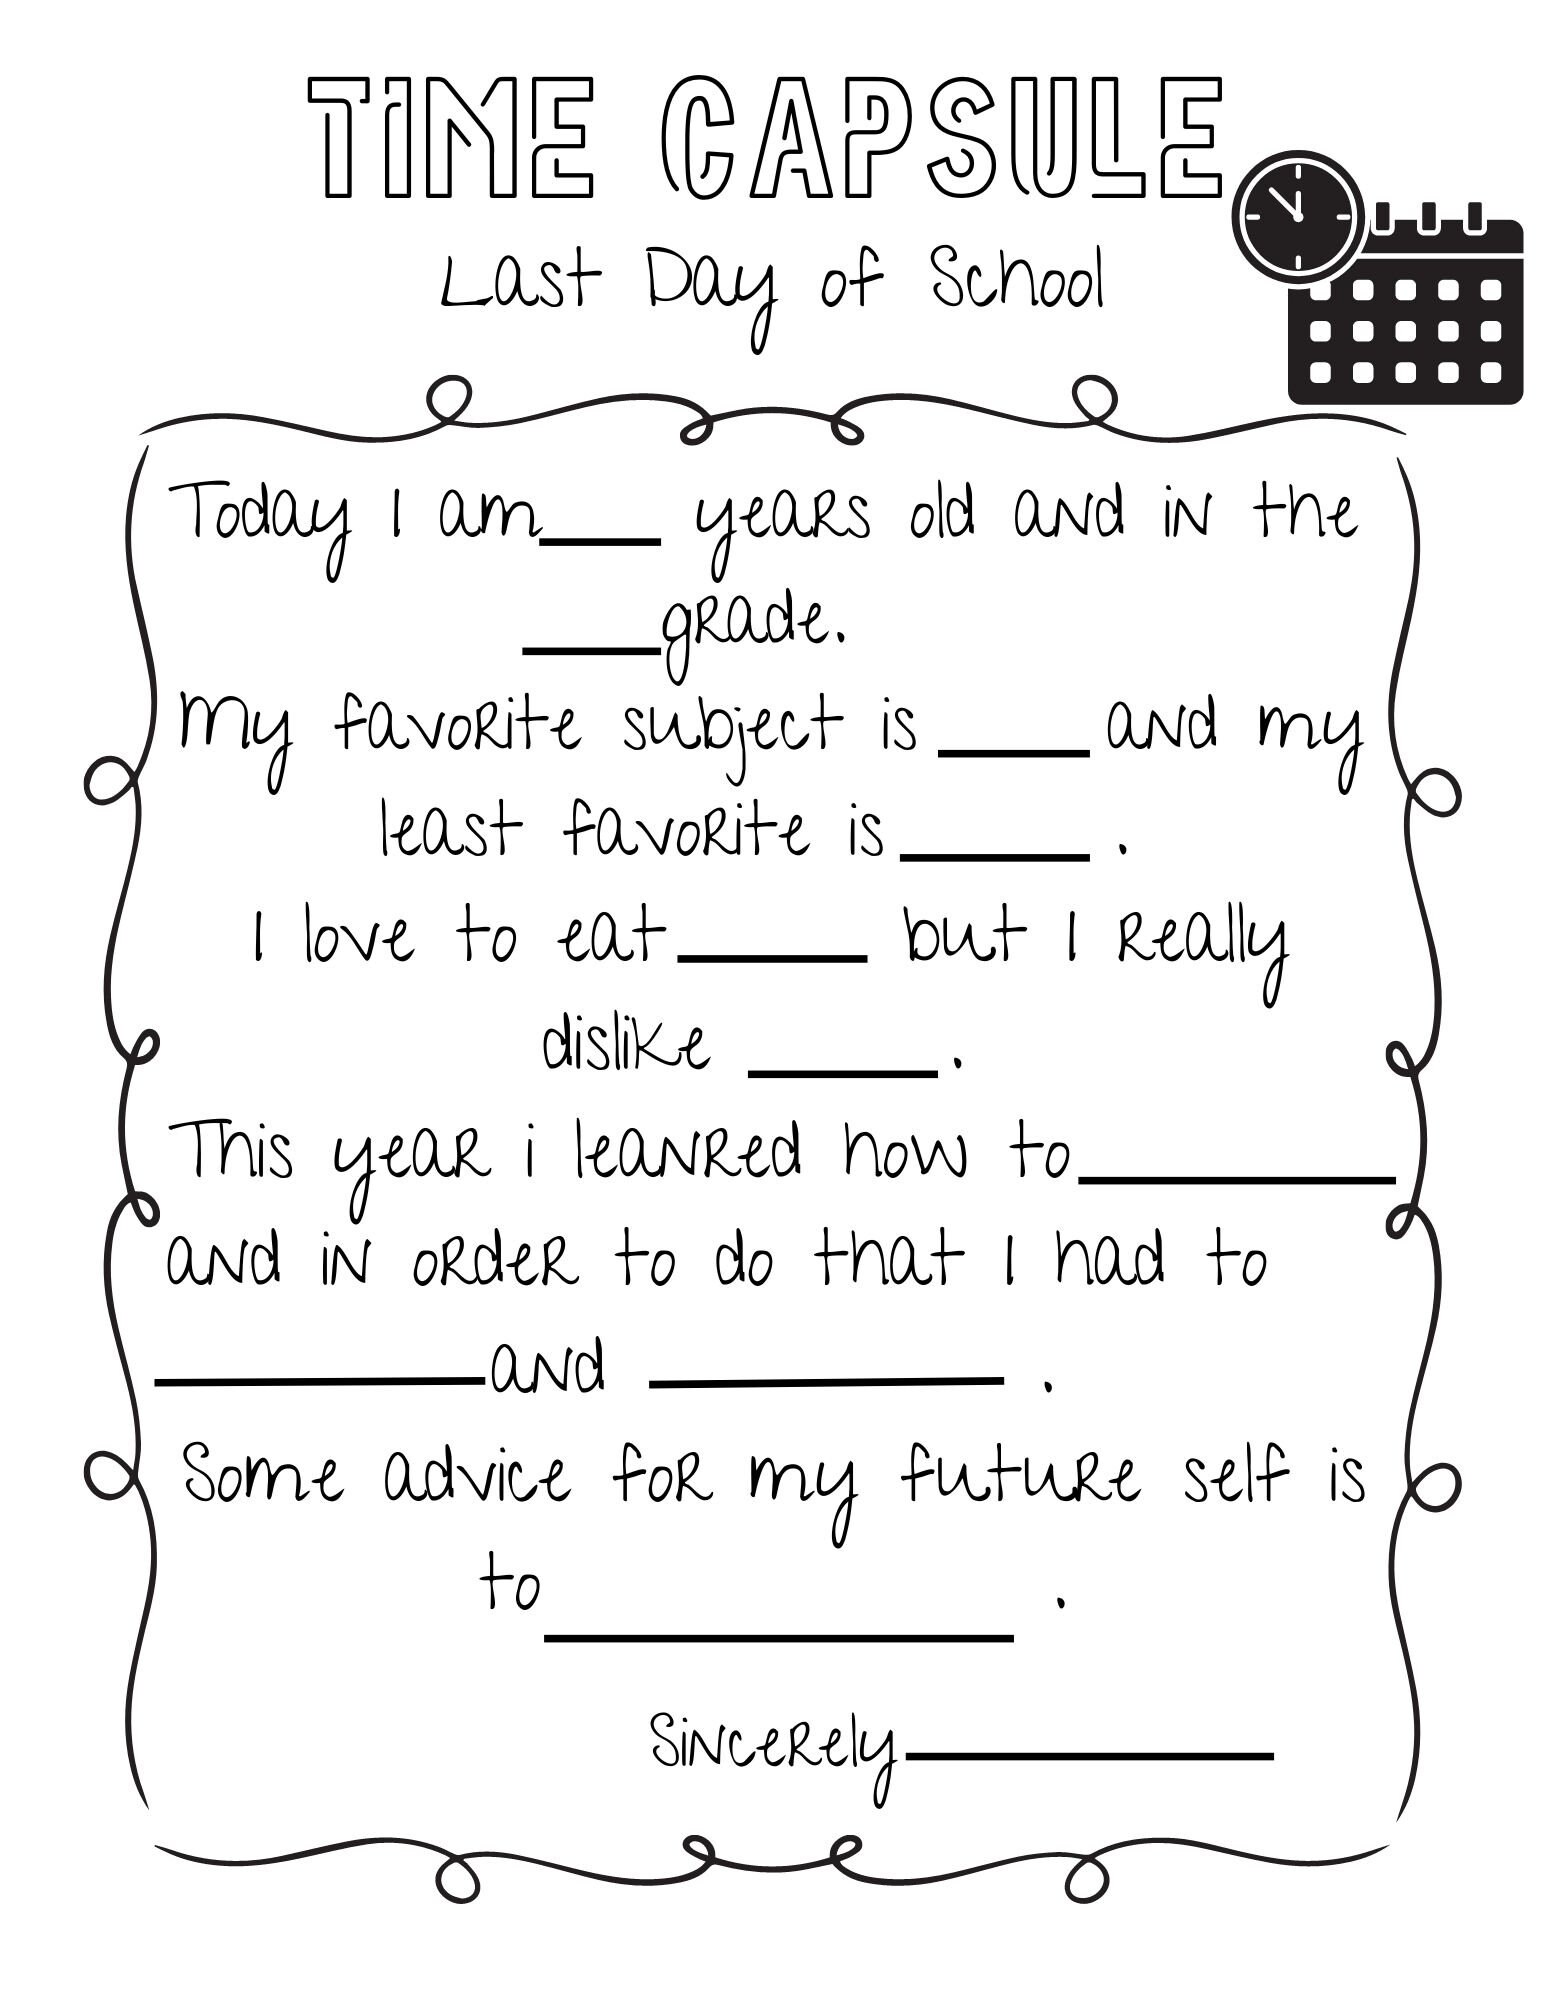 TIME CAPSULE
Last Day of School
Today I am____ years old and in the
____grade.
My favorite subject is ____ and my
least favorite is ____ .
I love to eat ____ but I really
dislike ____ .
This year i leanred how to ____
and in order to do that I had to
____ and ____ .
Some advice for my future self is
to ____ .
Sincerely ____